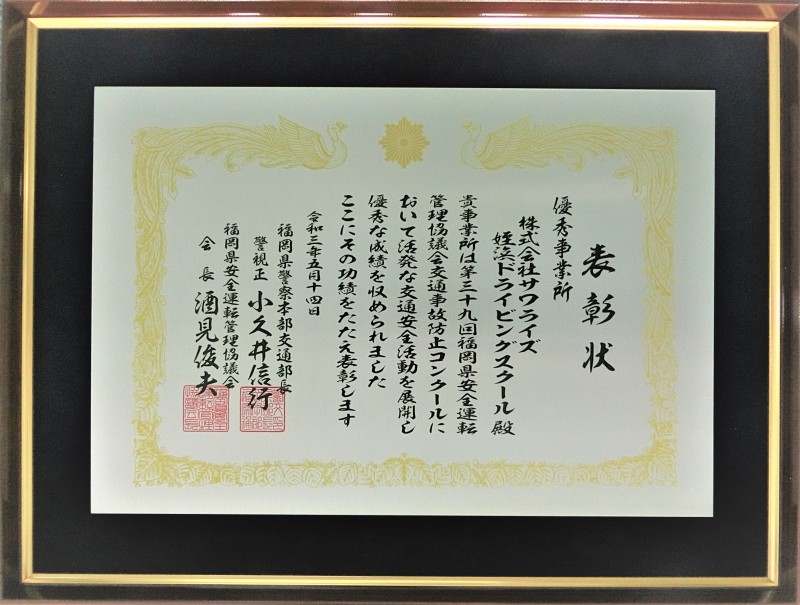 表彰状
優秀事業所
株式会社サワライズ
姪浜ドライビングスクール 殿
貴事業所は第三十九回福岡県安全運転
管理協議会交通事故防止コンクールに
おいて活発な交通安全活動を展開し
優秀な成績を収められました
ここにその功績をたたえ表彰します
令和三年五月十四日
福岡県警察本部交通部長
警視正 小久井信行
福岡県安全運転管理協議会
会長 酒見俊夫